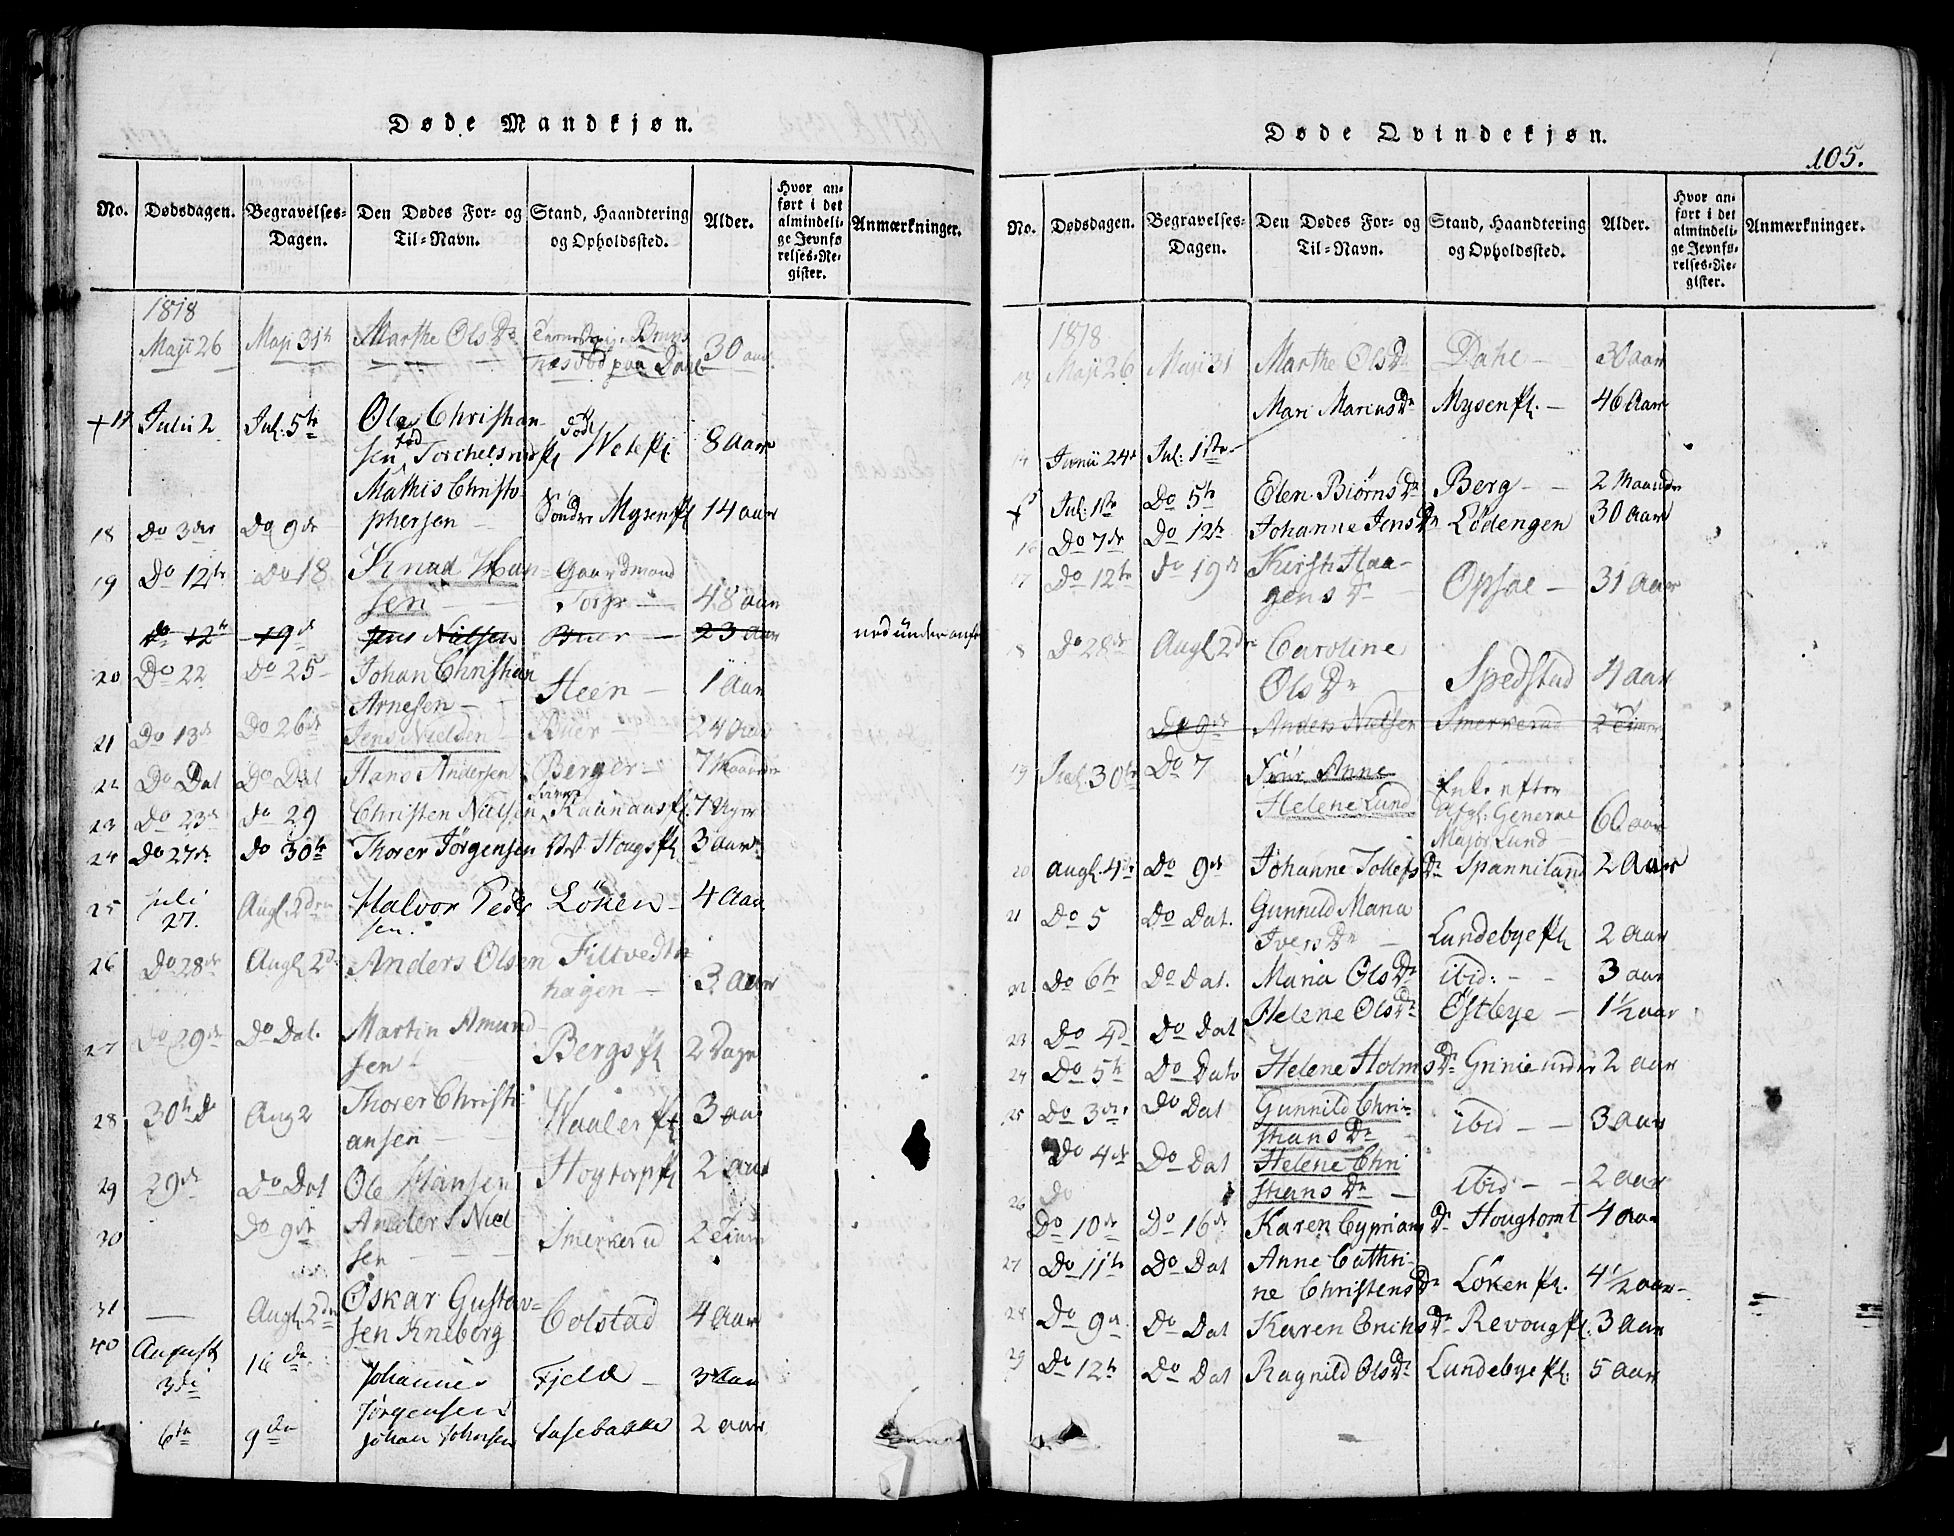 Døde Mandkjøn.
No. Dødsdagen. Begravelses-Dagen. Den Dødes For- og Til-Navn. Stand, Haandtering og Opholdssted. Alder. Hvor anført i det almindelige Jevnførelses-Register. Anmærkninger.
1818
Maji 26 Maji 31te Marthe Ols Dr paa Dahl 30 aar
+17 Julii 2 Jul. 5te Ole Christian
sen fød Torchelsrud pl Vete pl. 8 Aar
Mathis Christo-
18 Do 3die Do 9de phersen Søndre Mysen pl 14 aar
19 Do 12te Do 18 Knud Han- Gaardmand
sen Torp 48 aar
do 12te 19de Jens Nielsen Buer 23 Aar
20 Do 22 Do 25 Johan Christian
Arnesen Heen 1 Aar
21 Do 13de Do 26de Jens Nielsen Buer 24 Aar
22 Do Dat Do Dat Hans Andersen Berger 7 Maaneder
23 Do 23de do 29 Christen Nielsen 7 Uger
24 Do 27de Do 30te Thorer Jørgensen Hougs pl 3 aar
25 juli 27. Augl. 2den Halvor Peder
sen. Løken 4 Aar
26 Do 28de Augl 2d Anders Olsen Filtvedt
hagen 3 Aar
27 Do 29de Do Dat. Martin Amund
sen Bergs pl 2 Dage
28 30te do Aug 2 Thorer Christi
ansen Haaler pl 3 aar
29 29de Do Dat Ole Hansen Hogtorp pl 2 aar
30 Do 9de Anders Niel
sen Smerkerud 2 Timer
31 — Augl 2den Oskar Gustav-
sen Kneberg Colstad 4 Aar
40 August 3di 16de Johannes
Jørgensen Fjeld 3 Aar
6te 9de Johan Johnsen Susebakke 2 aar
Døde Qvindekjøn.
105.
No. Dødsdagen. Begravelses-Dagen. Den Dødes For- og Til-Navn. Stand, Haandtering og Opholdssted. Alder. Hvor anført i det almindelige Jevnførelses-Register. Anmærkninger.
1818
13 Maji 26 Maji 31 Marthe Ols Dr Dahl 30 aar
14 Junii 24de Jul: 1ste Mari Marius Dr Mysen pl. 46 Aar
+15 Jul: 1ste Do 5te Elen Biørns Dr Berg 2 Maaneder
16 Do 7de Do 12te Johanne Jens Dr Lødengen 30 Aar
17 Do 12te do 19de Kirsti Haa-
gens Dr Opsae 31 Aar
18 Do 28de Augl 2den Caroline
Ols Dr Spedstad 4 aar
Do 9de Anders Nielsen Smerkerud 2 Timer
19 Jul 30te Do 7 Frue Anne
Helene Lund Enke efter
Afgl. General
Major Lund 60 aar
20 augl. 4de Do 9de Johanne Tollefs Dr Spanniland 2 Aar
21 Do 5 Do Dat. Gunnild Maria
Ivers Dr Lundebye pl 2 aar
22 Do 6te Do Dat. Maria Ols Dr ibid: 3 aar
23 Do 4d Do Dat Helene Ols Dr Østbye 1½ aar
24 Do 5te Do Dato Helene Holms Dr Grinie under 2 aar
25 Do 3die Do Dat Gunnild Chri-
stians Dr ibid 3 Aar
Do 4de Do Dat Helene Chri
26 Do stians Dr ibid 2 aar
Do 10de Do 16de Karen Cyprians Dr Hougtomt 4 aar
27 Do 11te Do Dat Anne Cathri-
ne Christens Dr Løken pl. 4½ aar
28 Do 9de Do Dat Karen Erichs Dr Revoug pl. 3 aar
29 Do 12te Do Dat Ragnild Ols Dr Lundebye pl: 5 aar